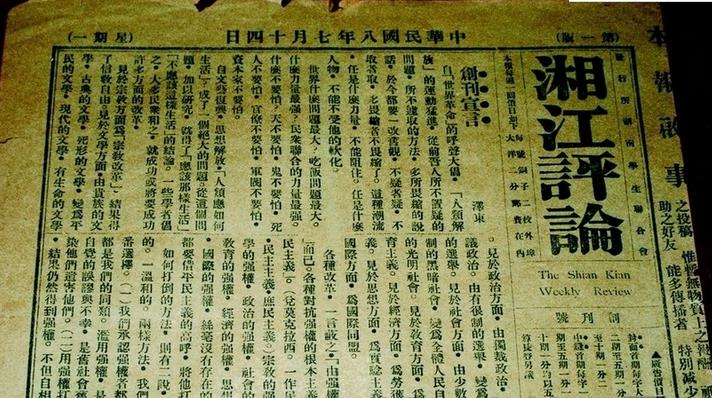 (第一版)
中華民國八年七月十四日
(星期一)
本報啟事
之投稿
助之好友
惟輕無物質上之報酬
能多傳播者
特別減少
湘江評論
發行所湖南學生聯合會
The Shian Kian
Weekly Review
創刊號
創刊宣言
澤東
自「世界革命」的呼聲大倡，「人類解
放」的運動猛進，從前吾人所不置疑的
問題，所不遽取的方法，多所畏縮的說
話，於今都要一改舊觀，不疑者疑，不
取者取，多畏縮者不畏縮了。這種潮流
，任是什麼力量，不能阻住。任是什麼
人物，不能不受他的軟化。
世界什麼問題最大？吃飯問題最大。
什麼力量最強？民眾聯合的力量最強。
什麼不要怕？天不要怕，鬼不要怕，死
人不要怕，官僚不要怕，軍閥不要怕，
資本家不要怕。
自文藝復興，思想解放，「人類應如何
生活」？成了一個絕大的問題。從這個問
題，加以研究，就得了「應該那樣生活」
「不應該這樣生活」的結論。一些學者倡
之，大多民眾和之，就成功或將要成功
許多方面的改革。
見於宗教方面，為「宗教改革」，結果得
了信教自由。見於文學方面，由貴族的文
學，古典的文學，死形的文學，變為平
民的文學，現代的文學，有生命的文學
。見於政治方面，由獨裁政治，變為
議政治。由有很制的選舉，
的選舉。見於社會方面，由少數
制的黑暗社會，變為全體人民自
的光明社會。見於教育方面，為
育主義。見於經濟方面，為勞獲
義。見於思想方面，為實驗主
國際方面，為國際同盟。
各種改革，一言蔽之，「由強權
」而已。各種對抗強權的根本主義
民主主義」。(兌莫克拉西。一作民
，民主主義，庶民主義。)宗教的強
學的強權，政治的強權，社會的
教育的強權，經濟的強權，思想
，國際的強權，絲毫沒有存在的
都要借平民主義的高呼，將他打
如何打倒的方法，則有二說，
的，一溫和的。兩樣方法，我們
番選擇。(一)我們承認強權者都
都是我們的同類。濫用強權，是
自覺的誤謬與不幸，是舊社會
染他們遺害他們。(二)用強權打
，結果仍然得到強權。不但自相